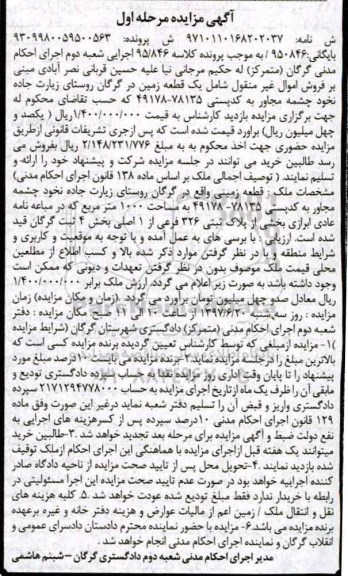 آگهی مزایده مرحله اول
ش نامه: ۹۷۱۰۱۱۰۱۶۸۲۰۲۰۳۷ ش پرونده: ۹۳۰۹۹۸۰۰۵۹۵۰۰۵۶۳
بایگانی:۹۵۰۸۴۶ / به موجب پرونده کلاسه ۹۵/۸۴۶ اجرایی شعبه دوم اجرای احکام
مدنی گرگان (متمرکز) له حکیم مرجانی نیا علیه حسین قربانی نصر آبادی مبنی
بر فروش اموال غیر منقول شامل یک قطعه زمین در گرگان روستای زیارت جاده
نخود چشمه مجاور به کدپستی ۷۸۱۳۵-۴۹۱۷۸ که حسب تقاضای محکوم له
جهت برگزاری مزایده بازدید کارشناس به قیمت ۱/۴۰۰/۰۰۰/۰۰۰ریال ( یکصد و
چهل میلیون ریال) براورد قیمت شده است که پس ازجری تشریفات قانونی ازطریق
مزایده حضوری جهت اخذ محکوم به به مبلغ ۲/۱۴۸/۲۳۱/۷۷۶ ریال بفروش می
رسد طالبین خرید می توانند در جلسه مزایده شرکت و پیشنهاد خود را ارائه و
تسلیم نمایند. ( توصیف اجمالی ملک بر اساس ماده ۱۳۸ قانون اجرای احکام مدنی)
مشخصات ملک : قطعه زمینی واقع در گرگان روستای زیارت جاده نخود چشمه
مجاور به کدپستی ۷۸۱۳۵-۴۹۱۷۸ به مساحت ۱۰۰۰ متر مربع که در مبایعه نامه
عادی ابرازی بخشی از پلاک ثبتی ۳۲۶ فرعی از ۱ اصلی بخش ۴ ثبت گرگان قید
شده است. ارزیابی : با برسی های به عمل آمده و با توجه به موقعیت و کاربری و
شرایط منطقه و با در نظر گرفتن موارد ذکر شده بالا و کسب اطلاع از مطلعین
محلی قیمت ملک موصوف بدون در نظر گرفتن تعهدات و دیونی که ممکن است
وجود داشته باشد به صورت زیر اعلام می گردد. ارزش ملک برابر ۱/۴۰۰/۰۰۰/۰۰۰
ریال معادل صدو چهل میلیون تومان برآورد می گردد. (زمان و مکان مزایده) زمان
مزایده : روز سه شنبه ۱۳۹۷/۶/۲۰ از ساعت ۱۰ الی ۱۱ صبح. مکان مزایده : دفتر
شعبه دوم اجرای احکام مدنی (متمرکز) دادگستری شهرستان گرگان (شرایط مزایده
)۱- مزایده ازمبلغی که توسط کارشناس تعیین گردیده برنده مزایده کسی است که
بالاترین مبلغ را درجلسه مزایده نماید.۲- برنده مزایده می بایست ۱۰درصد مبلغ مورد
پیشنهاد را تا پایان وقت اداری روز مزایده نقدا به حساب سپرده دادگستری تودیع و
مابقی آن را ظرف یک ماه ازتاریخ اجرای مزایده به حساب ۲۱۷۱۲۹۴۷۷۸۰۰۰ سپرده
دادگستری واریز و قبض آن را تسلیم دفتر شعبه نماید درغیر این صورت وفق ماده
۱۲۹ قانون اجرای احکام مدنی ۱۰درصد سپرده پس از کسرهزینه های اجرایی به
نفع دولت ضبط و آگهی مزایده برای مرحله بعد تجدید خواهد شد .۳-طالبین خرید
میتوانند یک هفته قبل ازاجرای مزایده با هماهنگی این اجرای احکام ازملک توقیف
شده بازدید نمایند .۴-تحویل محل پس از تایید صحت مزایده از ناحیه دادگاه صادر
کننده اجراییه خواهد بود در صورت عدم تایید صحت مزایده این اجرا مسئولیتی در
رابطه با خریدار ندارد فقط مبلغ تودیع شده عودت خواهد شد .۵. کلیه هزینه های
نقل و انتقال ملک / زمین اعم از مالیات عوارض و هزینه دفتر خانه و غیره برعهده
برنده مزایده می باشد.۶- مزایده با حضور نماینده محترم دادستان دادسرای عمومی و
انقلاب گرگان و نماینده اجرای احکام مدنی انجام خواهد شد .
مدیر اجرای احکام مدنی شعبه دوم دادگستری گرگان –شبنم هاشمی